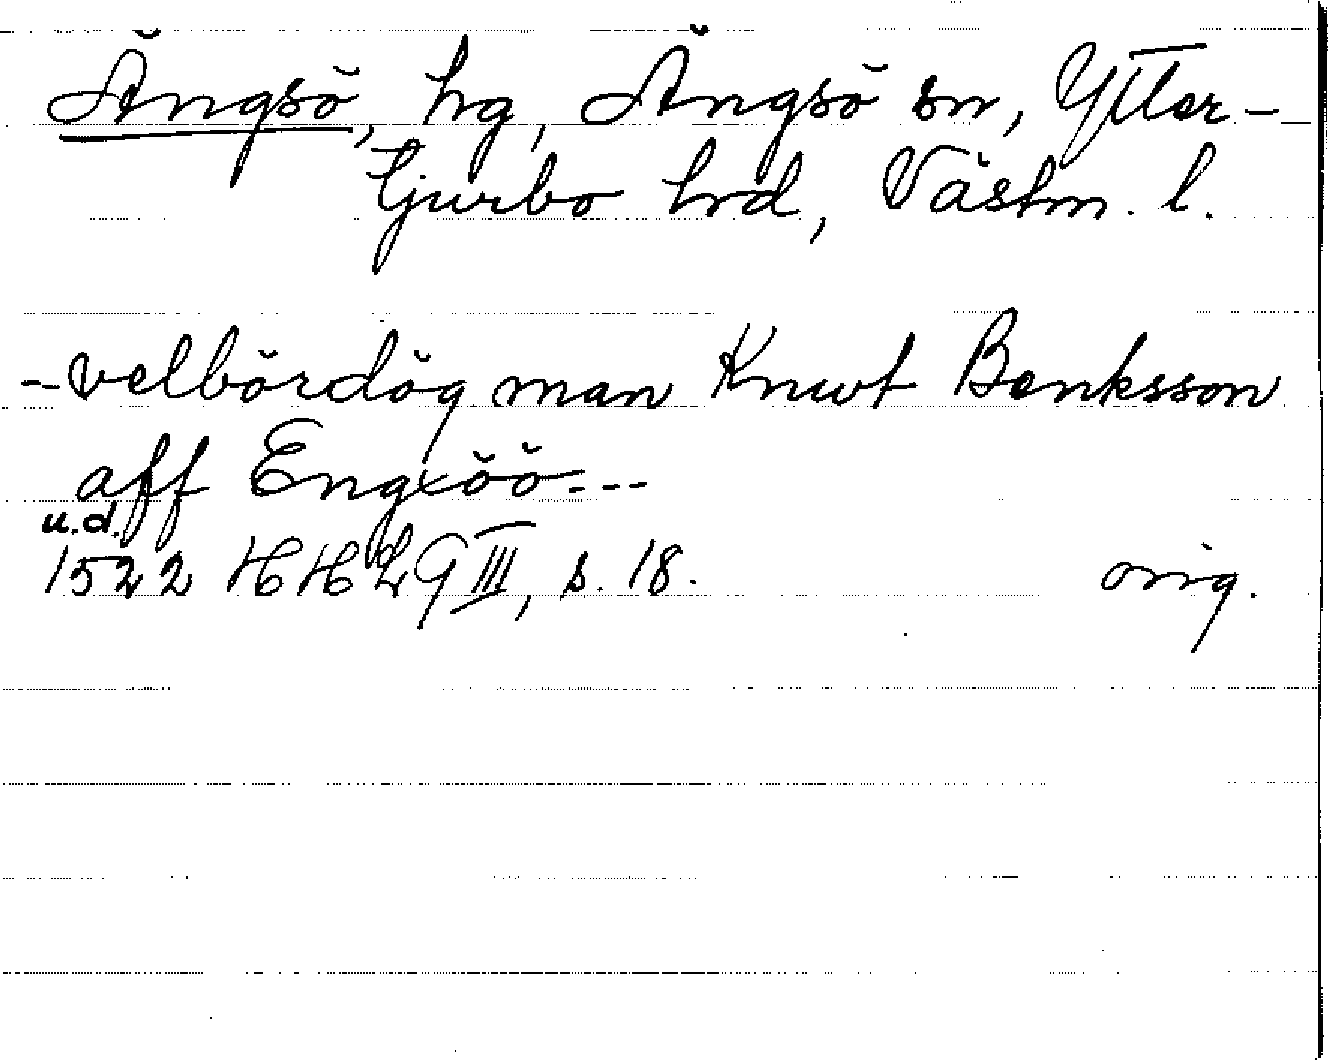 Ängsö, hg, Ängsö sn, Ytter-
tjurbo hrd, Västm. l.
- velbördög man Knwt Benksson
aff Engxöö---
u.d.
1522 HH LG III, s. 18. orig.